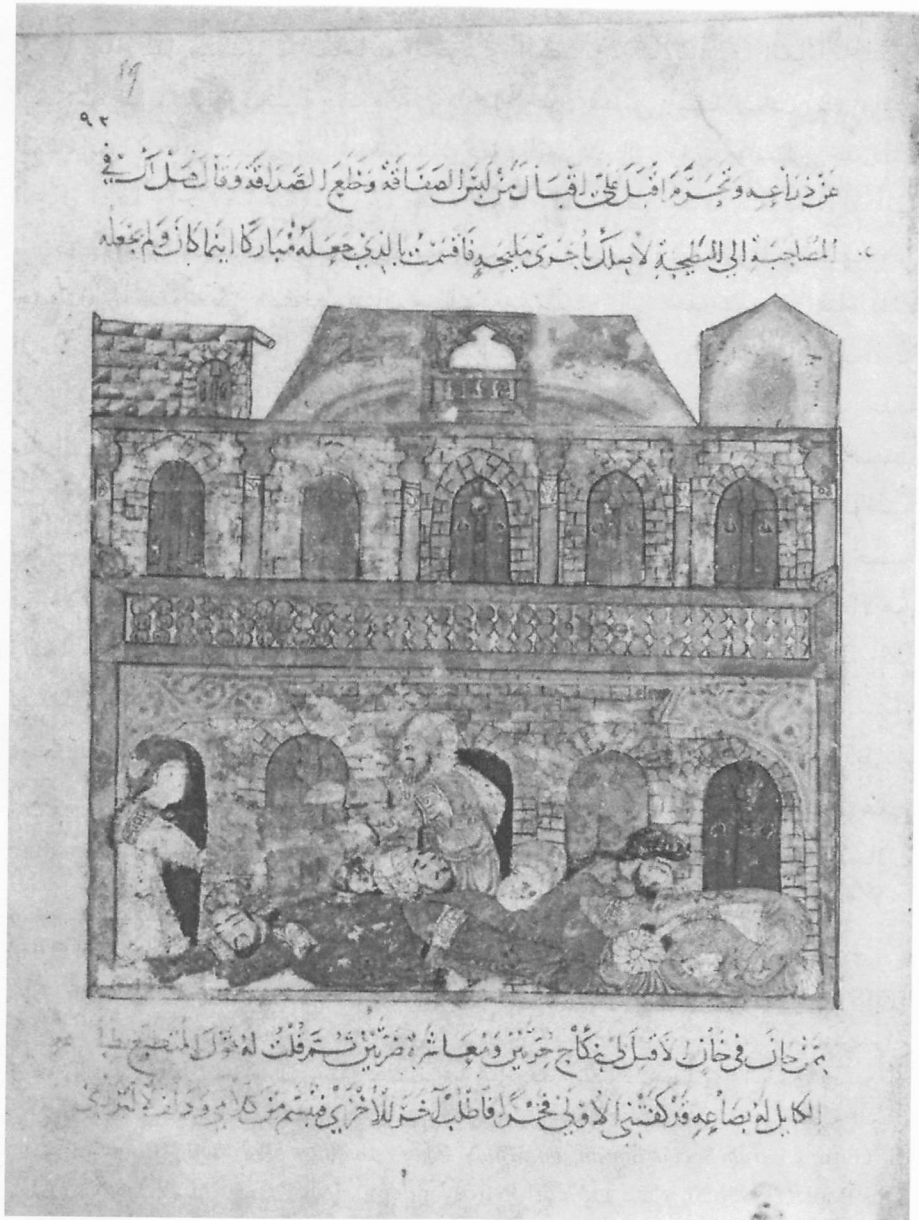 ٩٢
عن ذراعه وتحزم اقبل علي اقبال من لبس الصفاقة وخلع الصداقة وقال هل لك في
المصاحبة الي البطيحة لازوجك باخري مليحة فاقسمت بالذي جعله مباركا اينما كان ولم يجعله
ممن خان في خان لا قبل لي بنكاح حرتين ومعاشرة ضرتين ثم قلت له قول المتطبع بطباعه
الكايل له بصاعه قد كفتني الاولي فخرا فاطلب آخر للاخري فتبسم من كلامي ودلف لالتزامي